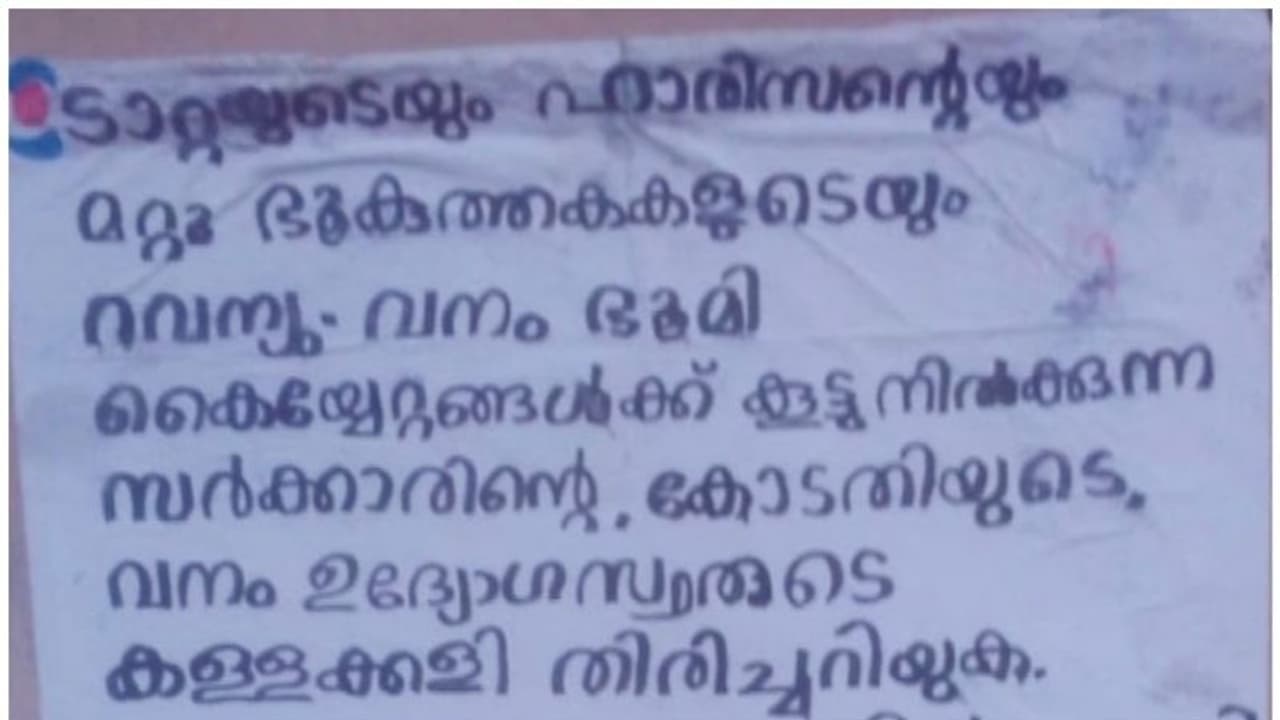 ടാറ്റയുടെയും ഹാരിസന്റെയും
മറ്റു ഭൂകുത്തകകളുടെയും
റവന്യൂ. വനം ഭൂമി
കൈയ്യേറ്റങ്ങൾക്ക് കൂട്ടു നിൽക്കുന്ന
സർക്കാരിന്റെ, കോടതിയുടെ,
വനം ഉദ്യോഗസ്ഥരുടെ
കള്ളക്കളി തിരിച്ചറിയുക.